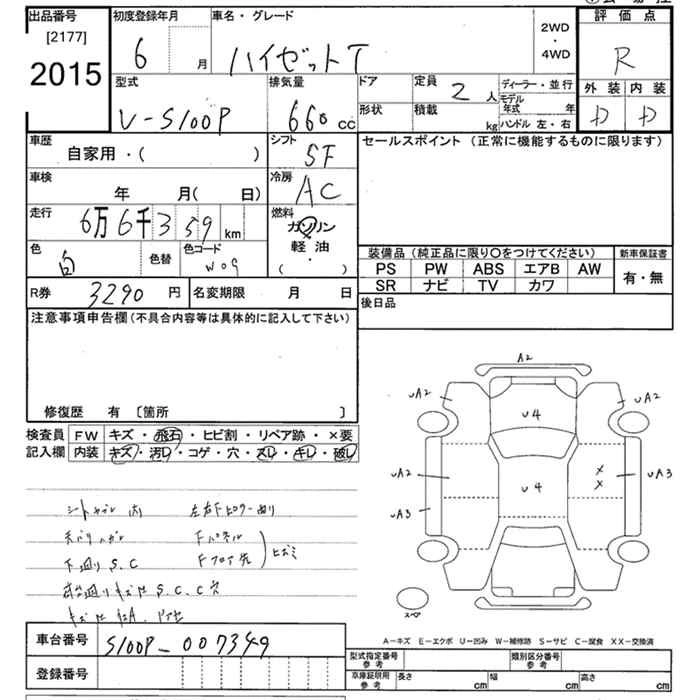 出品番号
[2177]
2015
初度登録年月
6 月
車名・グレード
ハイゼットT
2WD
・
4WD
評価点
R
外装 内装
D D
型式
V-S100P
排気量
660 cc
ドア
形状
定員 2 人
積載 kg
ディーラー・並行
モデル年式 年
ハンドル 左・右
車歴
自家用・( )
シフト
SF
セールスポイント (正常に機能するものに限ります)
車検
年 月( 日)
冷房
AC
走行
6万6千359 km
燃料
ガソリン
軽油
( )
色
白
色替
色コード
W09
装備品 (純正品に限り〇をつけてください)
PS PW ABS エアB AW
SR ナビ TV カワ
新車保証書
有・無
R券 3290 円
名変期限 月 日
後日品
注意事項申告欄 (不具合内容等は具体的に記入して下さい)
修復歴 有 〔箇所 〕
検査員
記入欄
FW キズ・飛石・ヒビ割・リペア跡・×要
内装 キズ・汚レ・コゲ・穴・スレ・キレ・破レ
下廻りS.C
Fパネル
Fフロア先
A2
UA2
UA2
U4
UA2
U4
UA3
UA3
スペア
A-キズ E-エクボ U-凹み W-補修跡 S-サビ C-腐食 XX-交換済
車台番号 S100P-007349
登録番号
型式指定番号
参考
類別区分番号
参考
車庫証明用
参考
長さ cm
幅 cm
高さ cm